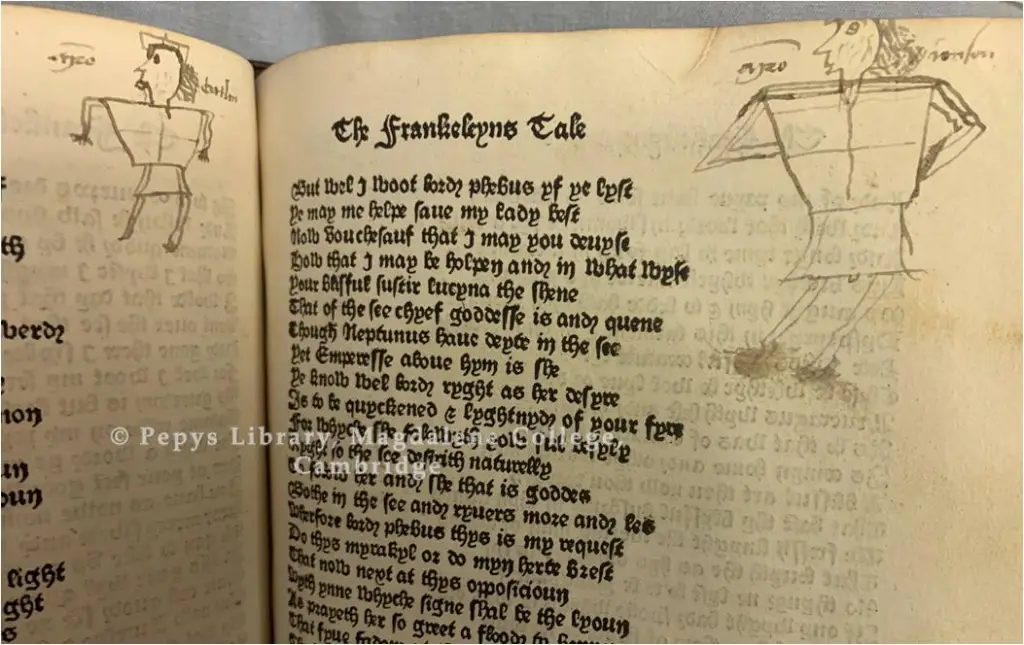 th
berd
non
un
oun
light
ght
s
The Frankeleyns Tale
But wel I woot lord phebus yf ye lyst
Ye may me helpe saue my lady best
Now vouchesauf that I may you deuyse
How that I may be holpen and in what wyse
Your blisful sustir lucyna the shene
That of the see chyef goddesse is and quene
Though Neptunus haue deyte in the see
Yet Emperesse aboue hym is she
Ye knowe wel lord ryght as her desyre
Is to be quyckened & lyghtnyd of your fyre
For whyche she folowith yow ful besyly
Ryght so the see desirith naturelly
To folow her and she that is goddes
Bothe in the see and ryuers more and les
Wherfore lord phebus thys is my request
Do thys myrakyl or do myn herte brest
That now next at thys opposicioun
Wyth ynne whyche signe shal be the lyoun
As prayeth her so greet a flood to
That fyue
© Pepys Library, Magdalene College,
Cambridge